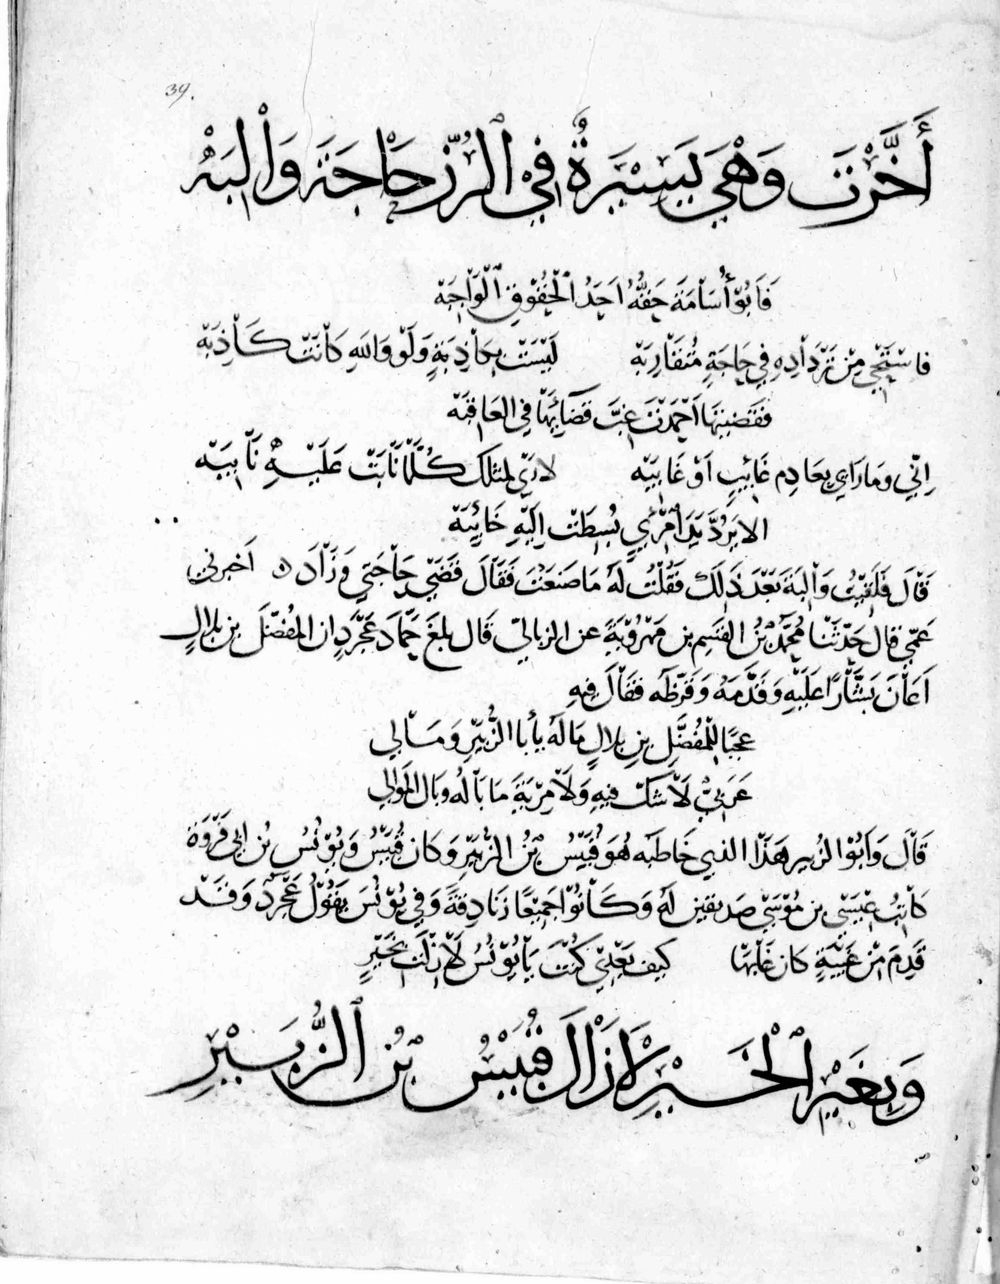 39.
أَخَّرْتَ وَهْيَ يَسِيرَةٌ فِي الرُّزْءِ حَاجَةَ وَالِبَهْ
فَأَبُوْ أُسَامَةَ حَقُّهُ أَحَدُ الْحُقُوْقِ الْوَاجِبَهْ
فاسْتَحْيِ مِنْ تَرْدَادِهِ فِي حَاجَةٍ مُتَقَارِبَهْ لَيْسَتْ بِكَاذِبَةٍ وَلَوْ وَاللهِ كَانَتْ كَاذِبَهْ
فَقَضَيْتَهَا أَحْمَدْتَ غِبَّ قَضَائِهَا فِي العَاقِبَهْ
إِنّي وما رَأيي بِعَادِمِ غَائِبٍ أَوْ غَايِبَهْ لأرى لمثلك كُلَّمَا نَابَتْ عَلَيْهِ نَايِبَهْ
الا يَرُدَّ يَدَ امْرِئٍ بُسِطَتْ اِلَيْهِ خَائِبَهْ
قَالَ فَلَقِيْتُ وَالِبَةَ بَعْدَ ذَلِكَ فَقُلْتُ لَهُ مَا صَنَعْتَ فَقَالَ قَضَى حَاجَتِي وَزَادَ ه أَخبرني
عَمِّي قال حَدَّثَنَا مُحَمَّدُ بْنُ القسِمِ بن مَهْرُوْيَةَ عن الزيالي قَال بلغَ حَمَّادَ عَجْرَدٍ ان المُفَضَّلَ بن بلالٍ
اَعَانَ بَشَّارًا عَلَيْهِ وَقَدَّمَهُ وَقَرَّظَه فَقَالَ فِيهِ
عجبًا لِلْمُفَضَّلِ بنِ بلالٍ مَا لَهُ يأبا الزُّبَيْرِ وَمَالي
عَرَبيٌّ لاَ شَكَّ فيهِ وَلاَ مِرْيَةَ مَا بَالُهُ وبال المَوَالي
قَالَ وَأَبُوْ الزُبير هَذَا الذي خَاطَبَه هُوَ قُبَيْسُ بْنُ الزُبَيْرِ وَكان قُبَيْسُ وَيُوْنُسُ بنُ ابي فَرْوَةَ
كَاتِبُ عِيسَى بن مُوْسَى صَديقين لَهُ وَكَانُوْا جَمِيْعًا زَنَادِقَةً وَفِي يُوْنُسَ يَقُوْلُ عَجْرَدُ وَقَدْ
قَدِمَ مِنْ غَيْبَةٍ كان غَابَهَا كيف بَعْدِي كُنْتَ يَا يُوْنُسُ لاَ زِلْتَ بِخَيْرِ
وَبِغَيْرِ الْخَيْرِ لاَ زَالَ قُبَيْسُ بْنُ الزُّبَيْرِ